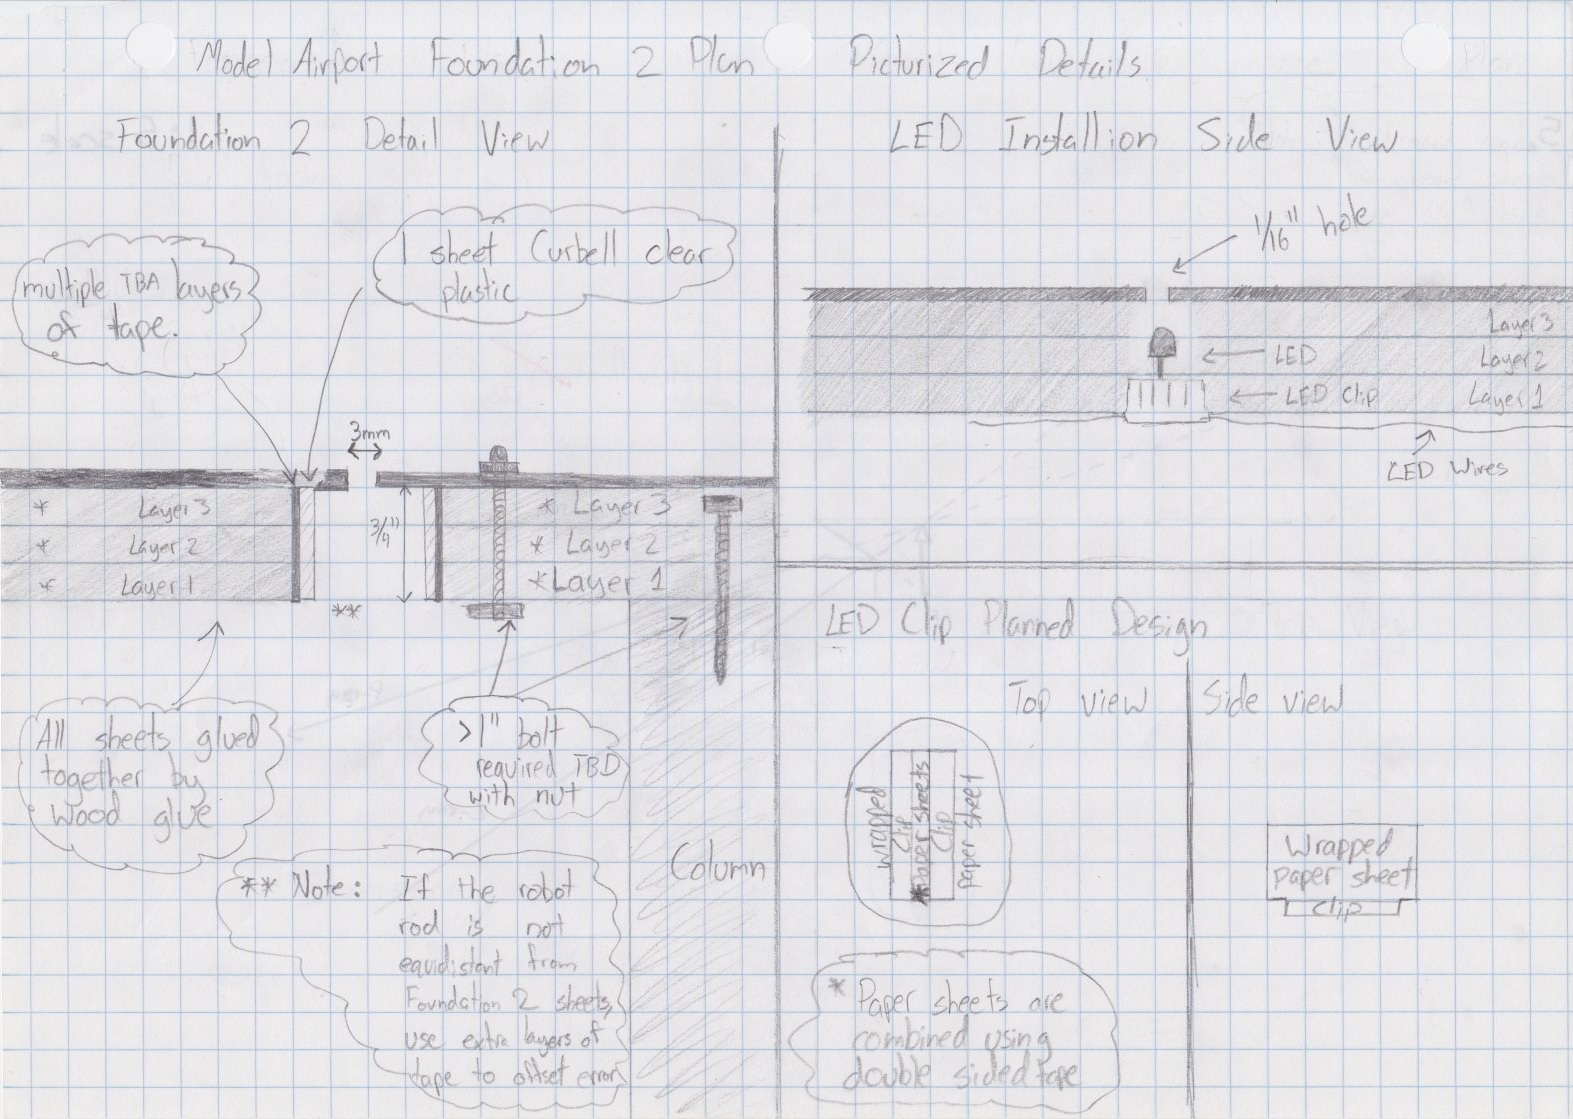 Model Airport Foundation 2 Plan Picturized Details
Foundation 2 Detail View
multiple TBA layers
of tape.
1 sheet Curbell clear
plastic
3mm
* Layer 3
* Layer 2
* Layer 1
3/4"
* Layer 3
* Layer 2
*Layer 1
**
All sheets glued
together by
wood glue
>1" bolt
required TBD
with nut
Column
** Note: If the robot
rod is not
equidistant from
Foundation 2 sheets,
use extra layers of
tape to offset error
LED Installion Side View
1/16" hole
Layer 3
LED
Layer 2
LED Clip
Layer 1
LED Wires
LED Clip Planned Design
Top view
Side view
wrapped
clip
*Paper sheets
clip
paper sheet
Wrapped
paper sheet
clip
* Paper sheets are
combined using
double sided tape